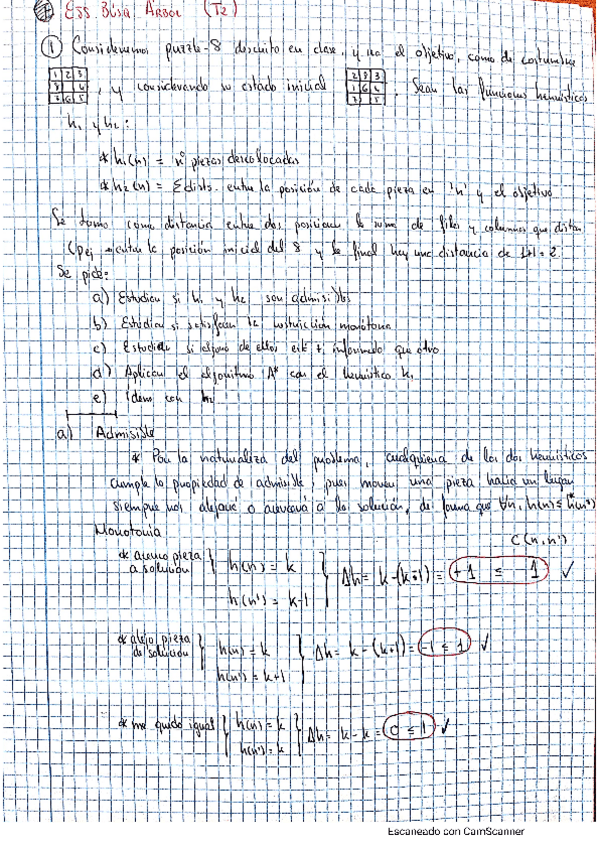 Ejs. Búsq. Árbol (T2)
① Consideremos puzzle-8 descrito en clase, y sea el objetivo, como de costumbre
1 2 3 2 8 3
8 4 , y considerando su estado inicial 1 6 4 . Sean las funciones heurísticas
7 6 5 7 5
h1 y h2:
* h1(n) = nº piezas descolocadas
* h2(n) = Σ dists. entre la posición de cada pieza en 'n' y el objetivo
Se toma como distancia entre dos posiciones la suma de filas y columnas que distan
(Pej, entre la posición inicial del 8 y la final hay una distancia de 1+1=2.
Se pide:
a) Estudiar si h1 y h2 son admisibles
b) Estudiar si satisfacen la restricción monótona
c) Estudiar si alguno de ellos está + informado que otro
d) Aplicar el algoritmo A* con el heurístico h1
e) Ídem con h2
a) Admisible
* Por la naturaleza del problema, cualquiera de los dos heurísticos
cumple la propiedad de admisible, pues mover una pieza hacia un lugar
siempre nos alejará o acercará a la solución, de forma que ∀n, h(n) ≤ h*(n)
Monotonía
C(n,n')
* acerco pieza a solución } h(n) = k h(n') = k-1 } Δh = k-(k-1) = +1 ≤ 1 ✓
* alejo pieza de solución } h(n) = k h(n') = k+1 } Δh = k-(k+1) = -1 ≤ 1 ✓
* me quedo igual } h(n) = k h(n') = k } Δh = k-k = 0 ≤ 1 ✓
Escaneado con CamScanner